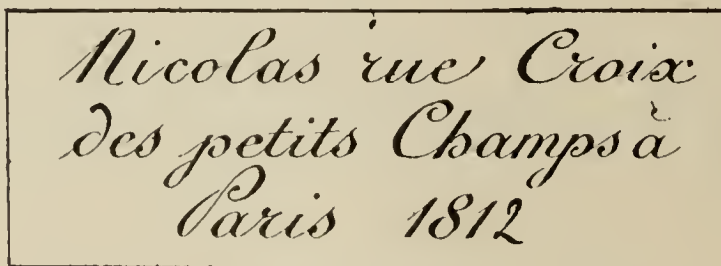 Nicolas rue Croix
des petits Champs à
Paris 1812